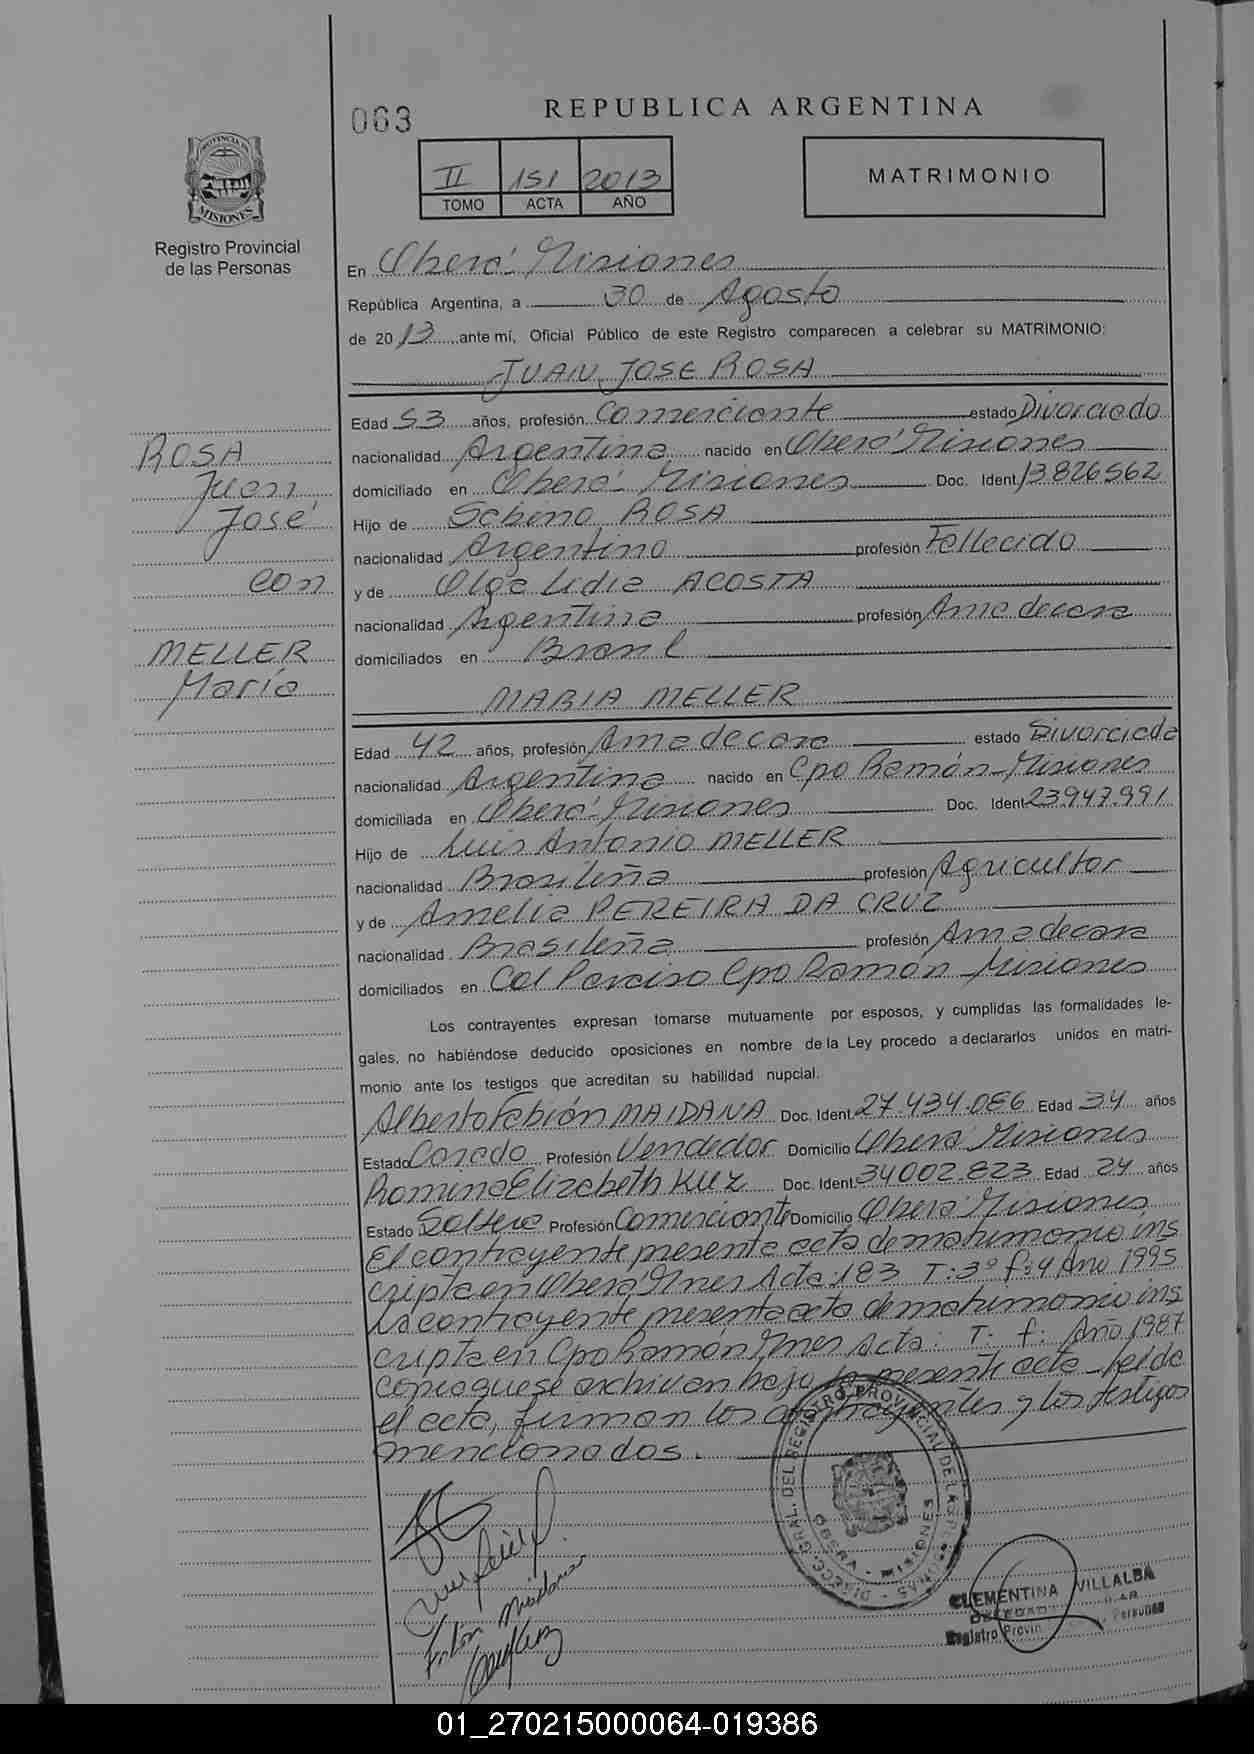 063
REPUBLICA ARGENTINA
II 151 2013
TOMO ACTA AÑO
MATRIMONIO
PROVINCIA DE
MISIONES
Registro Provincial
de las Personas
En Oberá - Misiones
República Argentina, a 30 de Agosto
de 2013 ante mí, Oficial Público de este Registro comparecen a celebrar su MATRIMONIO:
JUAN JOSE ROSA
Edad 53 años, profesión Comerciante estado Divorciado
nacionalidad Argentina nacido en Oberá Misiones
domiciliado en Oberá - Misiones Doc. Ident. 13826562
Hijo de Sabino ROSA
nacionalidad Argentino profesión Fallecido
y de Olga Lidia ACOSTA
nacionalidad Argentina profesión Ama de casa
domiciliados en Brasil
MARIA MELLER
Edad 42 años, profesión Ama de casa estado Divorciada
nacionalidad Argentina nacido en Cpo Ramón - Misiones
domiciliada en Oberá - Misiones Doc. Ident 23.947.991
Hijo de Luis Antonio MELLER
nacionalidad Brasileña profesión Agricultor
y de Amelia PEREIRA DA CRUZ
nacionalidad Brasileña profesión Ama de casa
domiciliados en Col Paraiso Cpo Ramón - Misiones
ROSA
Juan
José
con
MELLER
María
Los contrayentes expresan tomarse mutuamente por esposos, y cumplidas las formalidades le-
gales, no habiéndose deducido oposiciones en nombre de la Ley procedo a declararlos unidos en matri-
monio ante los testigos que acreditan su habilidad nupcial.
Alberto Fabián MAIDANA Doc. Ident. 27.434.086 Edad 34 años
Estado Casado Profesión Vendedor Domicilio Oberá Misiones
Romina Elizabeth KUZ Doc. Ident. 34002.823 Edad 24 años
Estado Soltera Profesión Comerciante Domicilio Oberá Misiones
El contrayente presenta acta de matrimonio ins
cripta en Oberá Mnes Acta: 183 T: 3º f: 4 Año 1995
La contrayente presenta acta de matrimonio ins
cripta en Cpo Ramón Mnes Acta: T: f: Año 1987
copia que se archivan bajo la presente acta - Leída
el acta, firman los contrayentes y los testigos
mencionados.
DIRECC. GRAL. DEL REGISTRO PROVINCIAL DE LAS PERSONAS
OBERA - MISIONES
CLEMENTINA VILLALBA
Registro Provin Personas
01_270215000064-019386